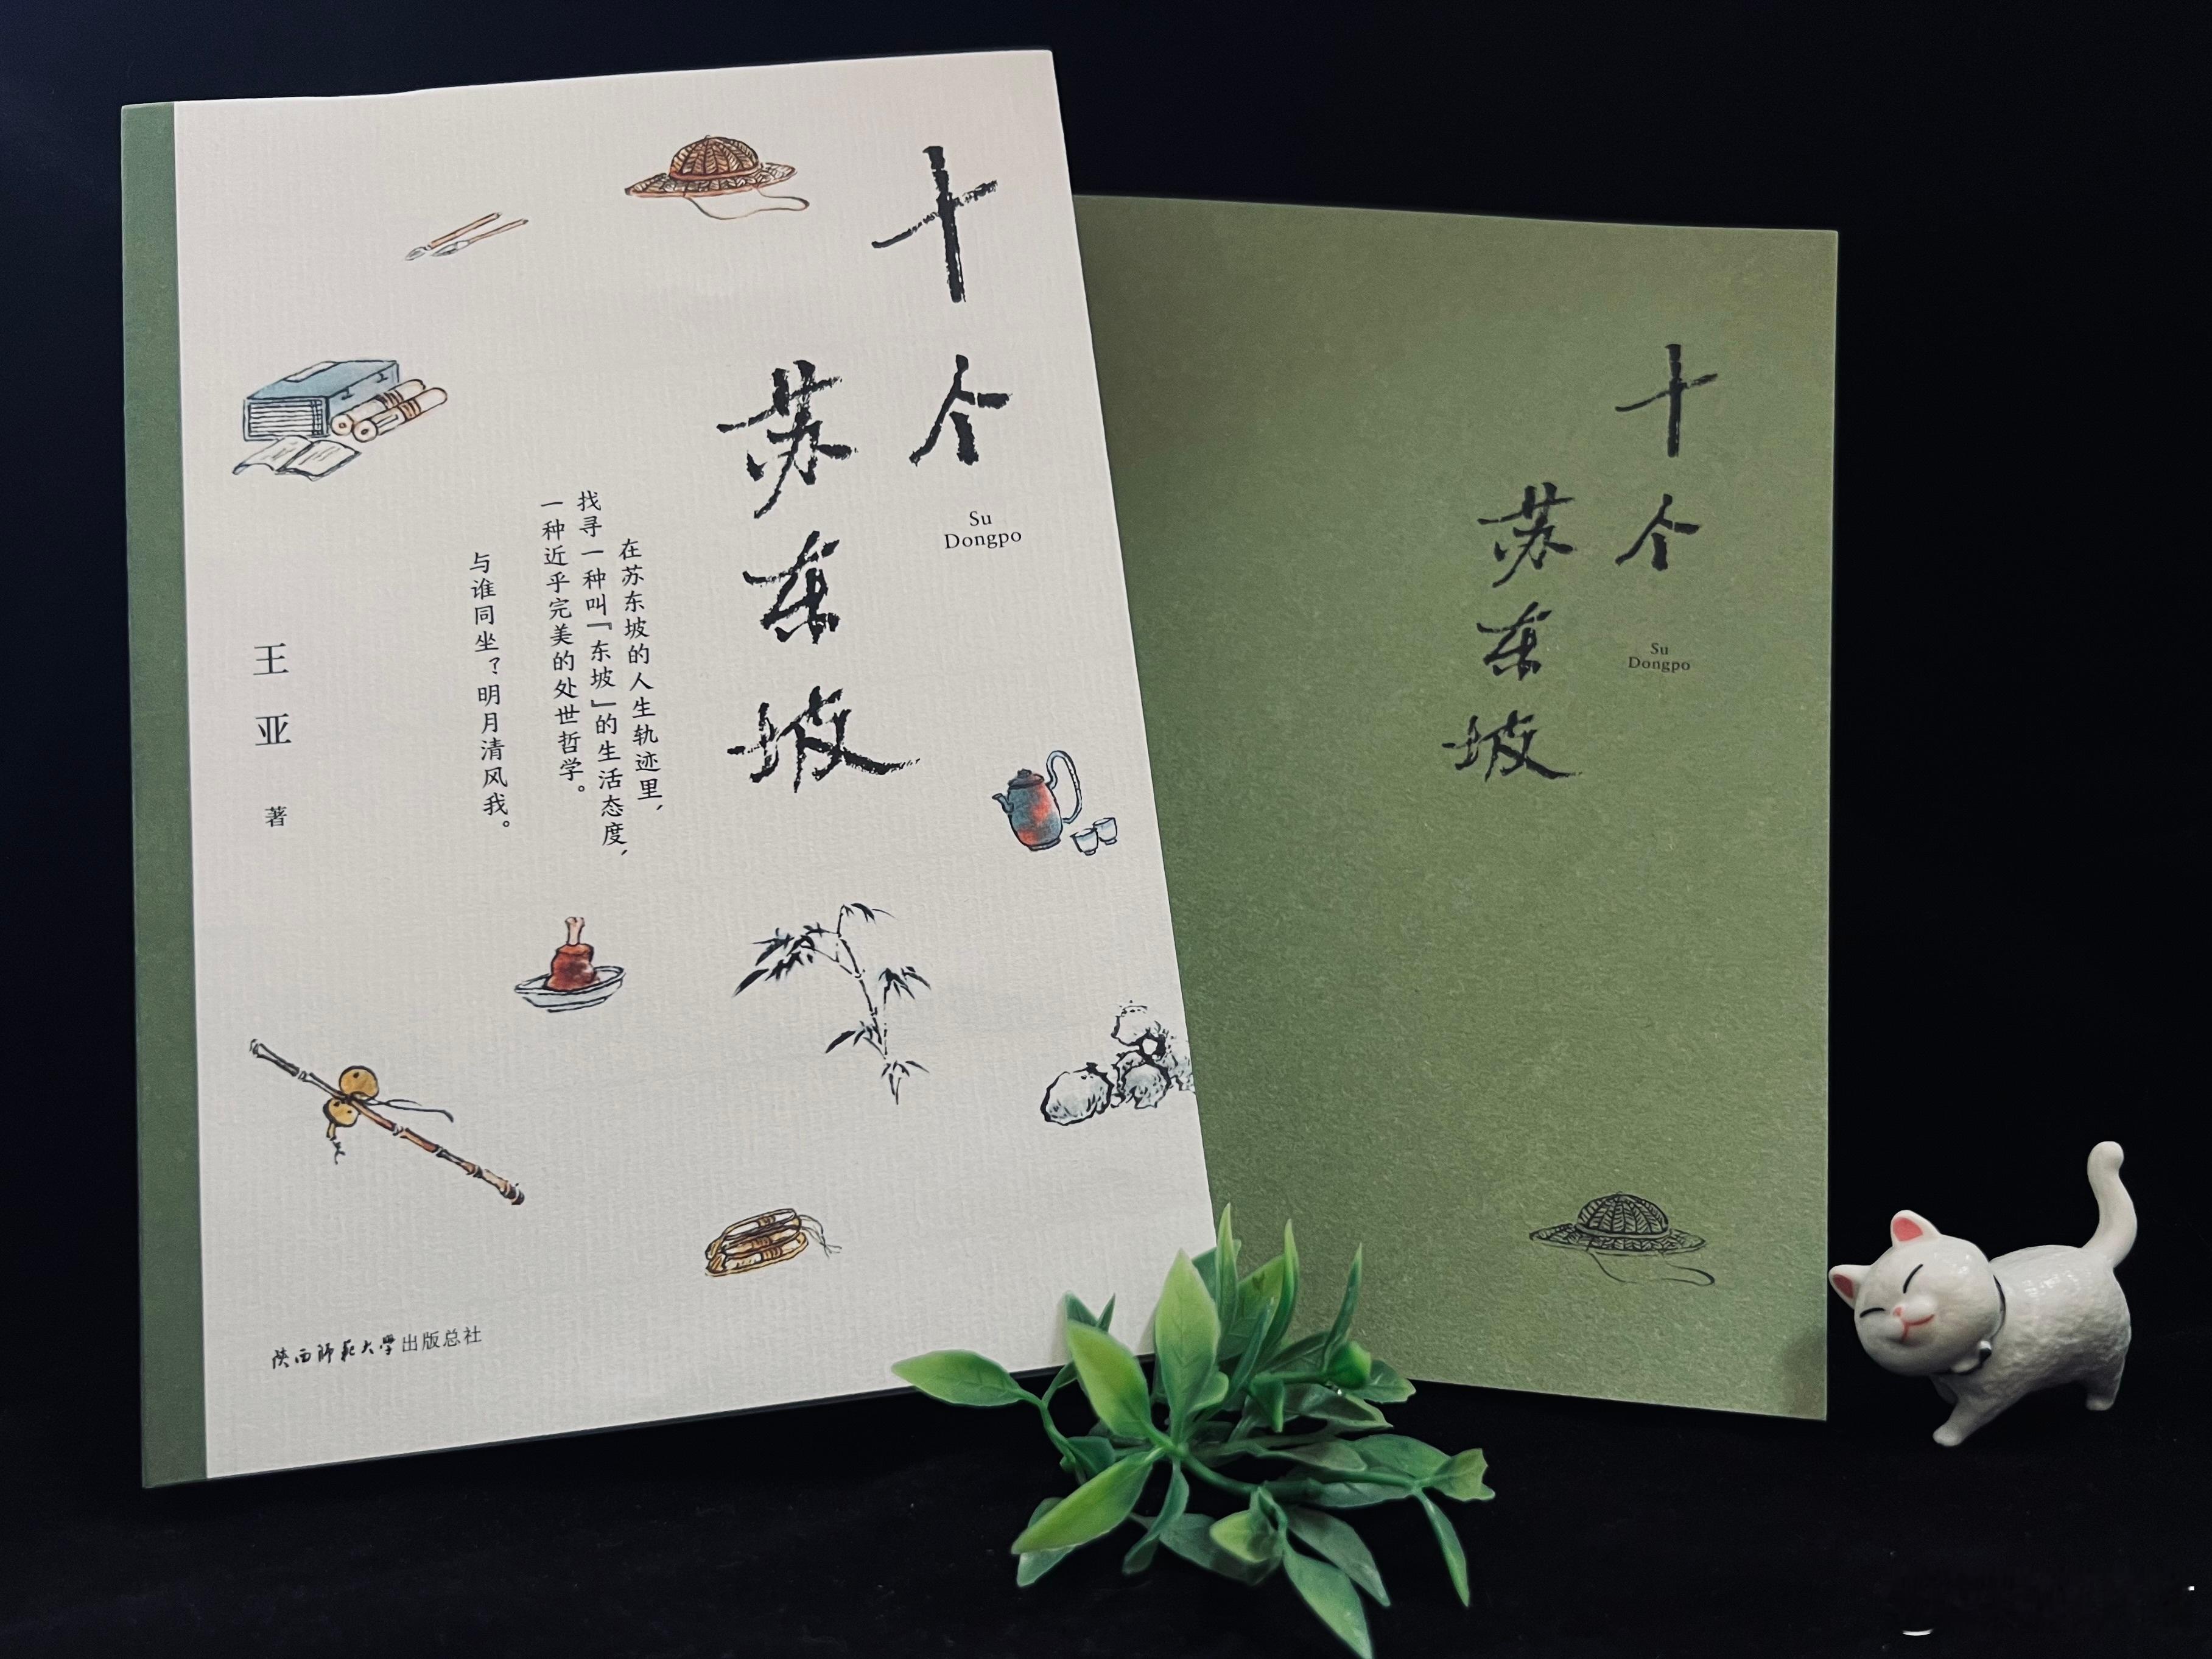 十个
苏东坡
Su
Dongpo
在苏东坡的人生轨迹里，
找寻一种叫「东坡」的生活态度，
一种近乎完美的处世哲学。
与谁同坐？明月清风我。
王亚 著
陕西师范大学出版总社
十个
苏东坡
Su
Dongpo